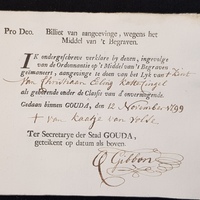 Pro Deo. Billiet van aangeevinge, wegens het
Middel van 't Begraven.
IK ondergeschreve verklare by dezen, ingevolge
van de Ordonnantie op 't Middel van 't Begraven
geëmaneert, aangevinge te doen van het Lyk van 't Kint
van Christiaan
als gehoorende onder de Classis van d'onvermogende.
Gedaan binnen GOUDA, den 12 November 1799
+ van Kaatje van
Ter Secretarye der Stad GOUDA,
geteikent op datum als boven.
Gibbon